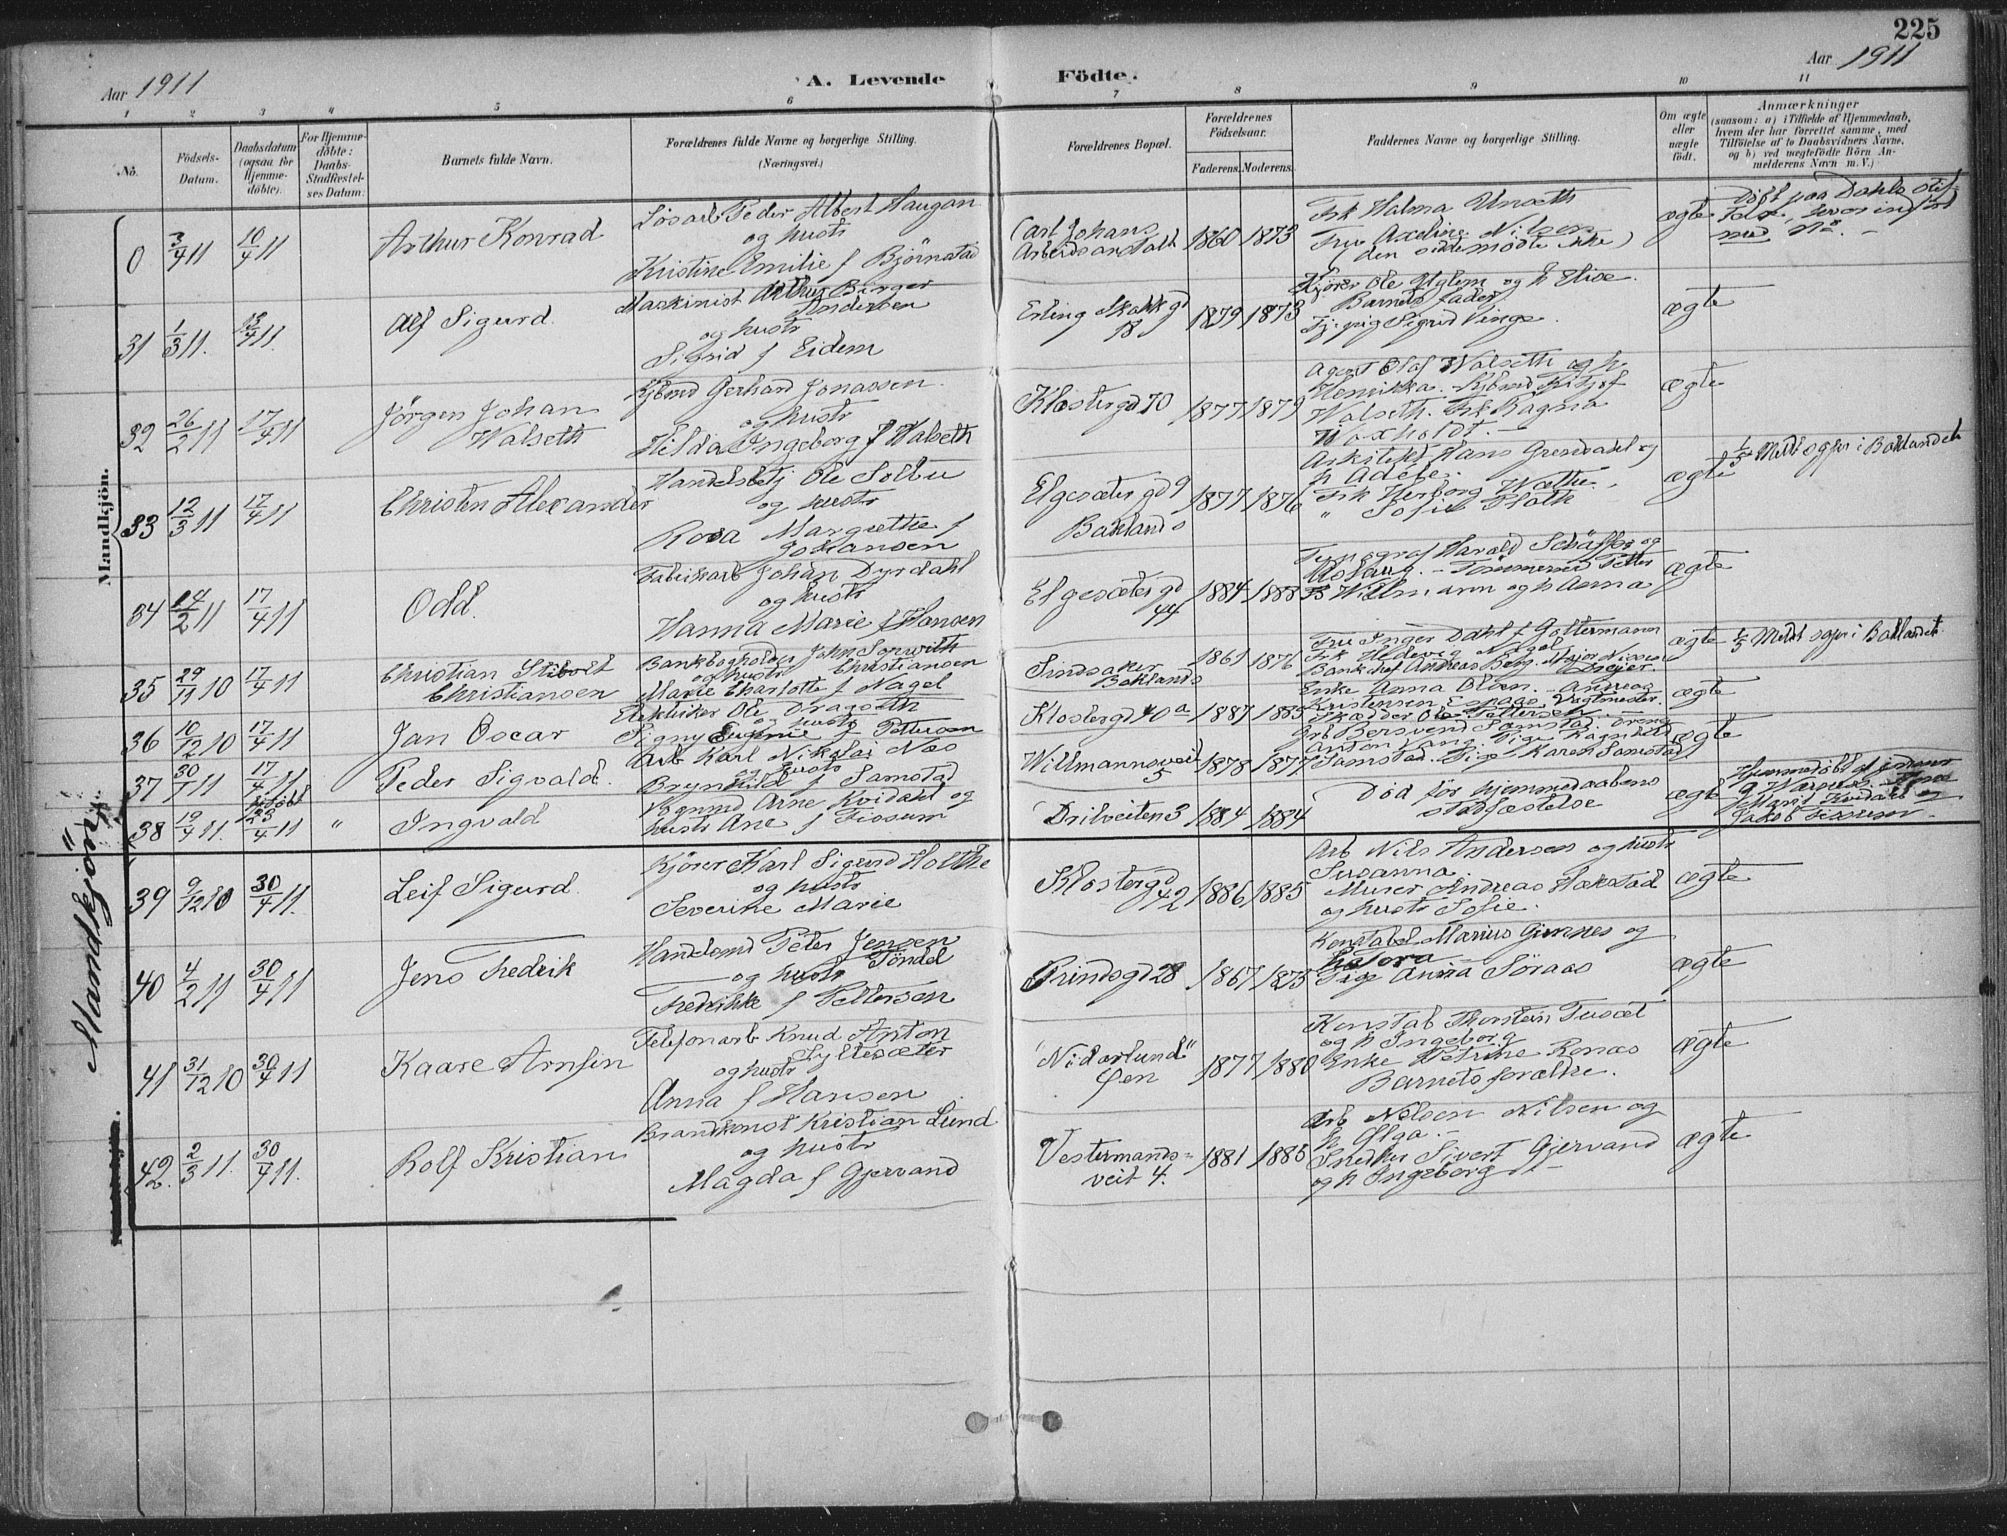 225
Aar 1911
A. Levende Födte.
Aar 1911
1 2 3 4 5 6 7 8 9 10 11
No.
Födsels-Datum.
Daabsdatum (ogsaa for Hjemme-döbte).
For Hjemme-döbte: Daabs-Stadfæstel-ses Datum.
Barnets fulde Navn.
Forældrenes fulde Navne og borgerlige Stilling. (Næringsvei.)
Forældrenes Bopæl.
Forældrenes Födselsaar.
Faderens. Moderens.
Faddernes Navne og borgerlige Stilling.
Om ægte eller uægte födt.
Anmærkninger
(saasom: a) i Tilfælde af Hjemmedaab, hvem der har forrettet samme, med Tilföielse af to Daabsvidners Navne, og b) ved uægtefödte Börn An-melderens Navn m. V.)
Mandkjön.
0 3/4 11 10/4 11 Arthur Konrad
Løsarb Peder Albert Haugan
og hustr
Kristine Emilie f Bjørnstad
Carl Johans
Arbeidsanstalt
1860 1873
Frk Halma Unseth
Fru Axeline Nilsen
(den sidste mødte ikke)
ægte
Døbt paa Dahls stif-
31 1/3 11. 17/4 11. Alf Sigurd.
Maskinist Arthur Birger
Andersen
og hustr
Sigrid f Eidem
Erling Skakk gd
18
1879 1873
Kjører Ole Uglem og h Elise.
Barnets fader
Sigrid Vinge.
ægte
32 26/2 11 17/4 11 Jörgen Johan
Walseth
Kjbmd Gerhard Jonassen.
og hustr
Hilda Ingeborg f Walseth
Klostergd 70
1877 1879
Agent Olaf Walseth og h.
Henrikka. Kjbmd
Walseth. Frk Ragna
ægte
33 12/3 11 17/4 11 Christen Alexander
Handelsbetj Ole Solbu
og hustr
Rosa Margrethe f
Johansen
Elgesæter gd 9
Baklands
1877 1876
Arkitekt Hans Grendahl og
h Adele.
Frk Herborg Wæthe.
" Sofie
ægte
1/5 Meldt sogpr i Baklandet
34 14/2 11 17/4 11 Odd.
Fabrikarb Johan Dyrdahl
og hustr
Hanna Marie f Hansen
Elgesæter gd
44
1884 1888
Typograf Harald Schäffer og
Aslaug. - Tømmermd Petter
B Willmann og h Anna
ægte
35 29/11 10 17/4 11 Christian Stibolt
Christiansen
Bankbogholder John Sorwith
Christiansen
og hustr
Marie Charlotte f Nagel
Sindsaker
Baklands
1861 1876
Fru Inger Dahl f Goltermann
Frk Hedevig Nagel
Bankchef Andreas Berg. Major Nissen
ægte
1/5 Meldt sogpr i Baklandet
36 10/12 10 17/4 11 Jan Oscar
Elektriker Ole Dragseth
og hustr
Signy Eugenie f Petterson
Klostergd 40 a
1887 1885
Enke Anna Olsen. Andreas
Kristensen
Skrædder Ole Pettersen
ægte
37 30/1 11 17/4 11 Peder Sigvald.
Arb Karl Nikolai Næs
og hustr
Brynhild f Samstad
Willmannsveit
5
1878 1877
Arb Bersvend Samstad.
Anton Vang. Pige Ragnhild
Samstad. Pige Karen Samstad
ægte
38 19/4 11. 23/4 11 " Ingvald
Kjbmd Arne Kvidahl og
hustr Ane f Fiosum
Drilveiten 3
1884 1884
Død før hjemmedaabens
stadfæstelse
ægte
Hjemmedøbt af
Marit Kvidahl og
Jakob
39 9/12 10 30/4 11. Leif Sigurd.
Kjörer Karl Sigurd Holthe
og hustr
Severine Marie
Klostergd
42
1886 1885
Arb Nils Andersen og hustr
Susanna
Murer Andreas Hakstad
og hustr Sofie.
ægte
40 4/2 11 30/4 11 Jens Fredrik
Handlsmd Peter Jensen
Tøndel
og hustr
Fredrikke f Pettersen
Prindsgd 28
1867 1875
Konstabel Marius Gimnes og
h Tora
Pige Anna Söraas
ægte
41 31/12 10 30/4 11 Kaare Arnfin
Telefonarb Knud Anton
Syltesæter
og hustr
Anna f Hansen
"Nidarlund"
Øen
1877 1880
Konstab Thorstein Tuset
og h Ingeborg
Enke Petrine Renaas
Barnets forældre.
ægte
42. 2/3 11. 30/4 11. Rolf Kristian
Brandkonst Kristian Lund
og hustr
Magda f Gjervand
Vestermands-
veit 4.
1881 1885
Arb Nelsen Nilsen og
h Olga. -
Snedker Sivert Gjervand
og h Ingeborg
ægte
Mandkjön.